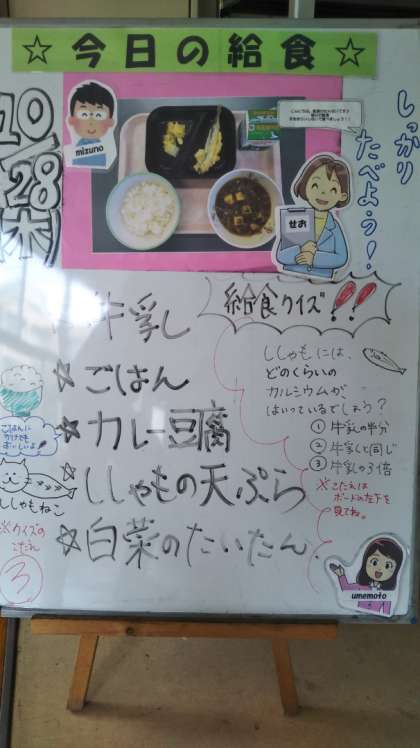 ☆今日の給食☆
10/28(木)
mizuno
せお
しっかり
たべよう!
牛乳
☆ごはん
☆カレー豆腐
☆ししゃもの天ぷら
☆白菜のたいたん
給食クイズ!!
ししゃもには、
どのくらいの
カルシウムが、
はいっているでしょう?
① 牛乳の半分
② 牛乳と同じ
③ 牛乳の3倍
※こたえは
ボードの左下を
見てね。
ごはんに
かけても
おいしいよ
ししゃもねこ
※クイズの
こたえ
3
umemoto